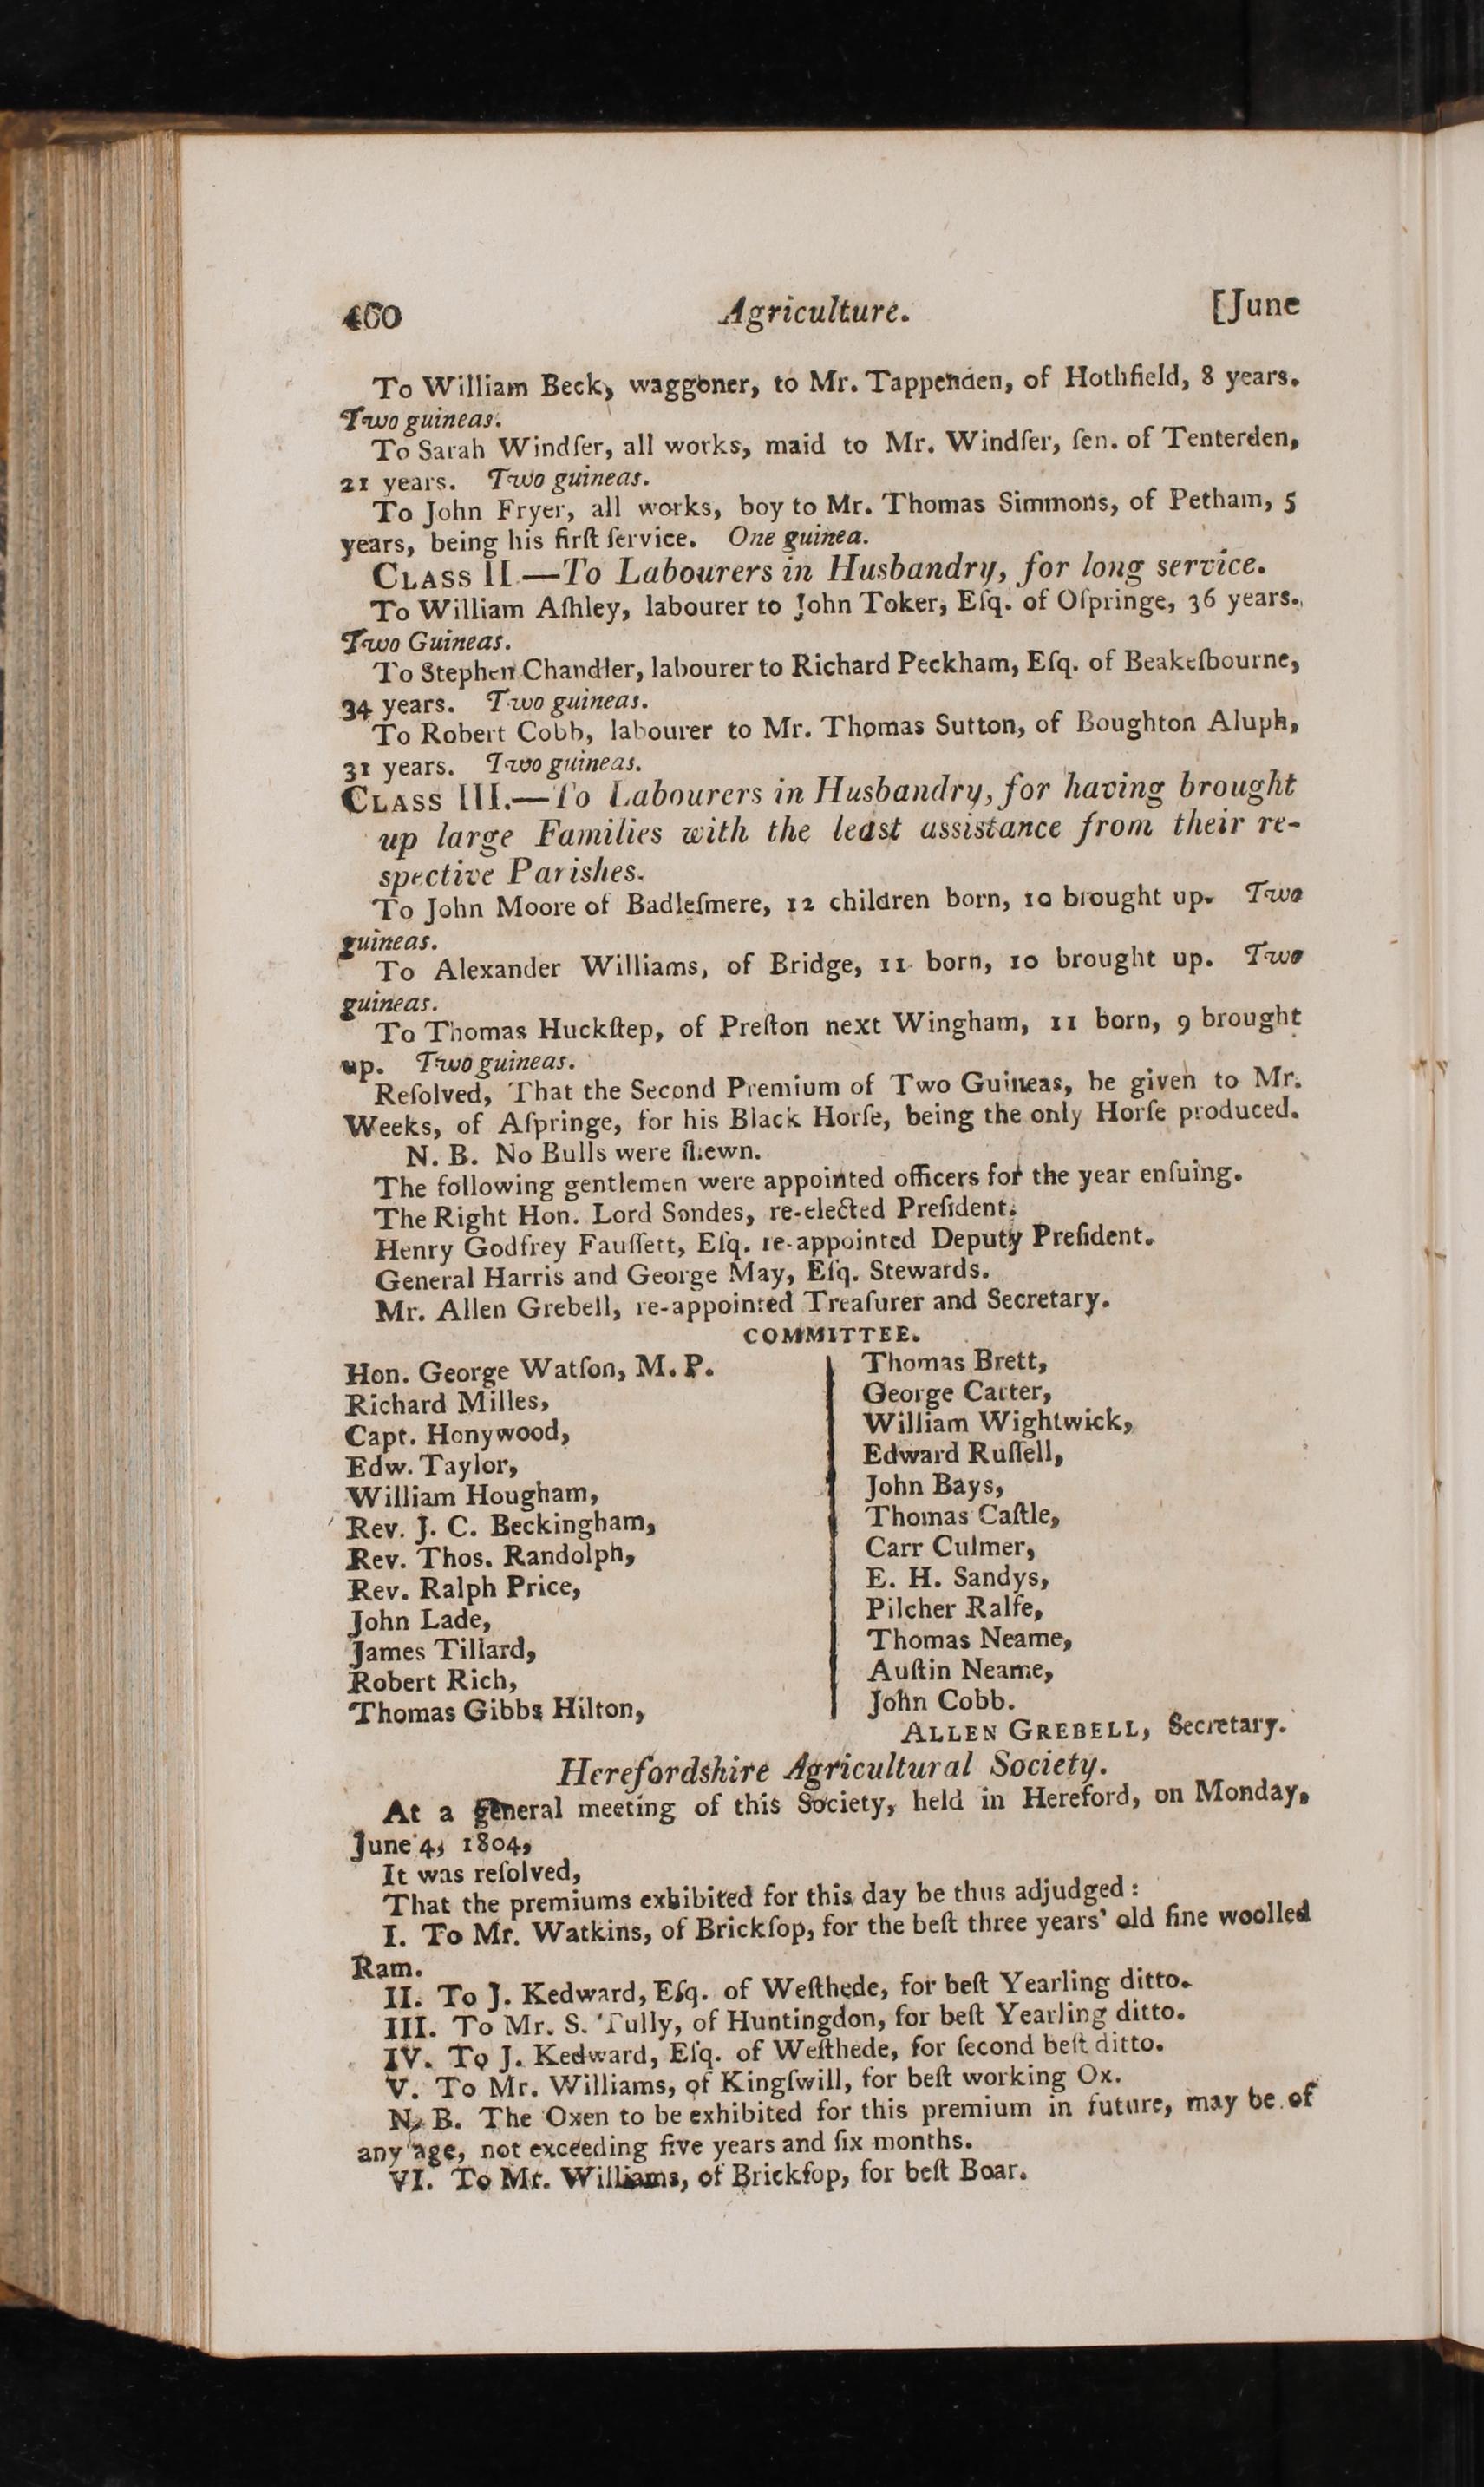 460 Agriculture. [June
To William Beck, waggoner, to Mr. Tappenden, of Hothfield, 8 years.
Two guineas.
To Sarah Windſer, all works, maid to Mr. Windſer, ſen. of Tenterden,
21 years. Two guineas.
To John Fryer, all works, boy to Mr. Thomas Simmons, of Petham, 5
years, being his firſt ſervice. One guinea.
CLASS II.—To Labourers in Husbandry, for long service.
To William Aſhley, labourer to John Toker, Eſq. of Oſpringe, 36 years.
Two Guineas.
To Stephen Chandler, labourer to Richard Peckham, Eſq. of Beakeſbourne,
34 years. Two guineas.
To Robert Cobb, labourer to Mr. Thomas Sutton, of Boughton Aluph,
31 years. Two guineas.
CLASS III.—To Labourers in Husbandry, for having brought
up large Families with the least assistance from their re-
spective Parishes.
To John Moore of Badleſmere, 12 children born, 10 brought up. Two
guineas.
To Alexander Williams, of Bridge, 11 born, 10 brought up. Two
guineas.
To Thomas Huckſtep, of Preſton next Wingham, 11 born, 9 brought
up. Two guineas.
Reſolved, That the Second Premium of Two Guineas, be given to Mr.
Weeks, of Aſpringe, for his Black Horſe, being the only Horſe produced.
N. B. No Bulls were ſhewn.
The following gentlemen were appointed officers for the year enſuing.
The Right Hon. Lord Sondes, re-elected Preſident.
Henry Godfrey Fauſſett, Eſq. re-appointed Deputy Preſident.
General Harris and George May, Eſq. Stewards.
Mr. Allen Grebell, re-appointed Treaſurer and Secretary.
COMMITTEE.
Hon. George Watſon, M. P.
Richard Milles,
Capt. Honywood,
Edw. Taylor,
William Hougham,
Rev. J. C. Beckingham,
Rev. Thos. Randolph,
Rev. Ralph Price,
John Lade,
James Tillard,
Robert Rich,
Thomas Gibbs Hilton,
Thomas Brett,
George Carter,
William Wightwick,
Edward Ruſſell,
John Bays,
Thomas Caſtle,
Carr Culmer,
E. H. Sandys,
Pilcher Ralfe,
Thomas Neame,
Auſtin Neame,
John Cobb.
ALLEN GREBELL, Secretary.
Herefordshire Agricultural Society.
At a general meeting of this Society, held in Hereford, on Monday,
June 4, 1804,
It was reſolved,
That the premiums exhibited for this day be thus adjudged:
I. To Mr. Watkins, of Brickſop, for the beſt three years' old fine woolled
Ram.
II. To J. Kedward, Eſq. of Weſthede, for beſt Yearling ditto.
III. To Mr. S. Tully, of Huntingdon, for beſt Yearling ditto.
IV. To J. Kedward, Eſq. of Weſthede, for ſecond beſt ditto.
V. To Mr. Williams, of Kingſwill, for beſt working Ox.
N. B. The Oxen to be exhibited for this premium in future, may be of
any age, not exceeding five years and ſix months.
VI. To Mr. Williams, of Brickſop, for beſt Boar.